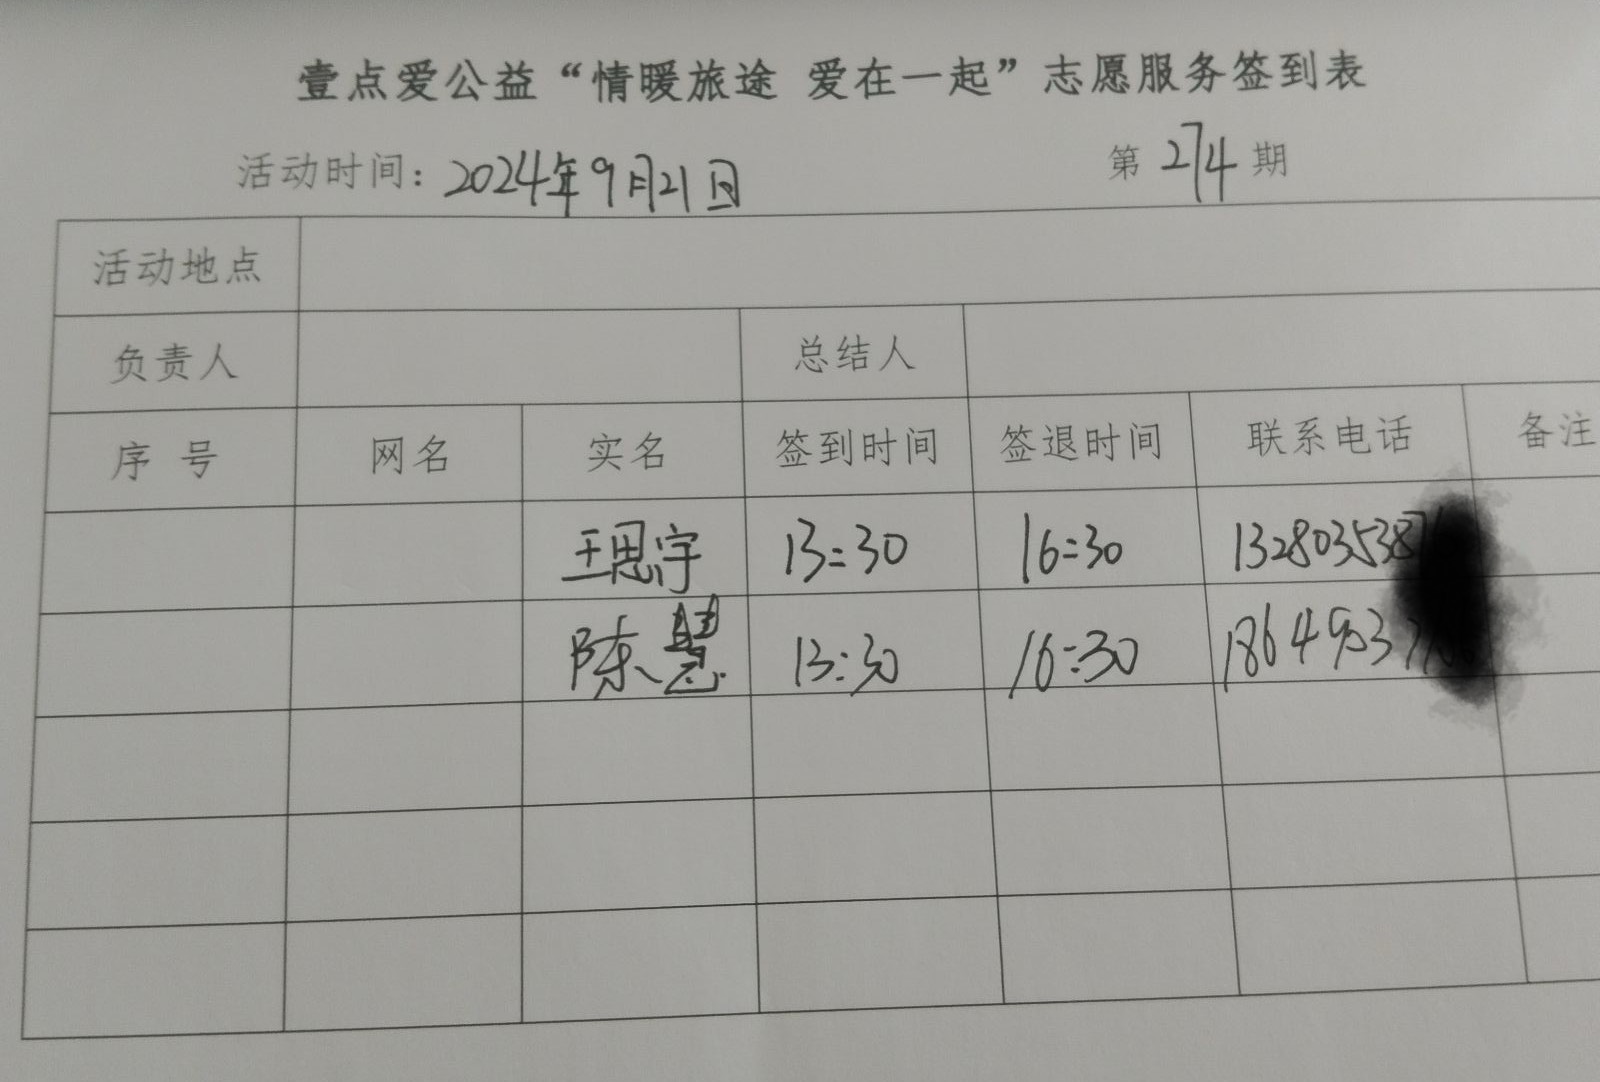 壹点爱公益“情暖旅途 爱在一起”志愿服务签到表
活动时间：2024年9月21日 第274期
活动地点
负责人 总结人
序号 网名 实名 签到时间 签退时间 联系电话 备注
王思宇 13:30 16:30 132803538
陈慧 13:30 16:30 1864953